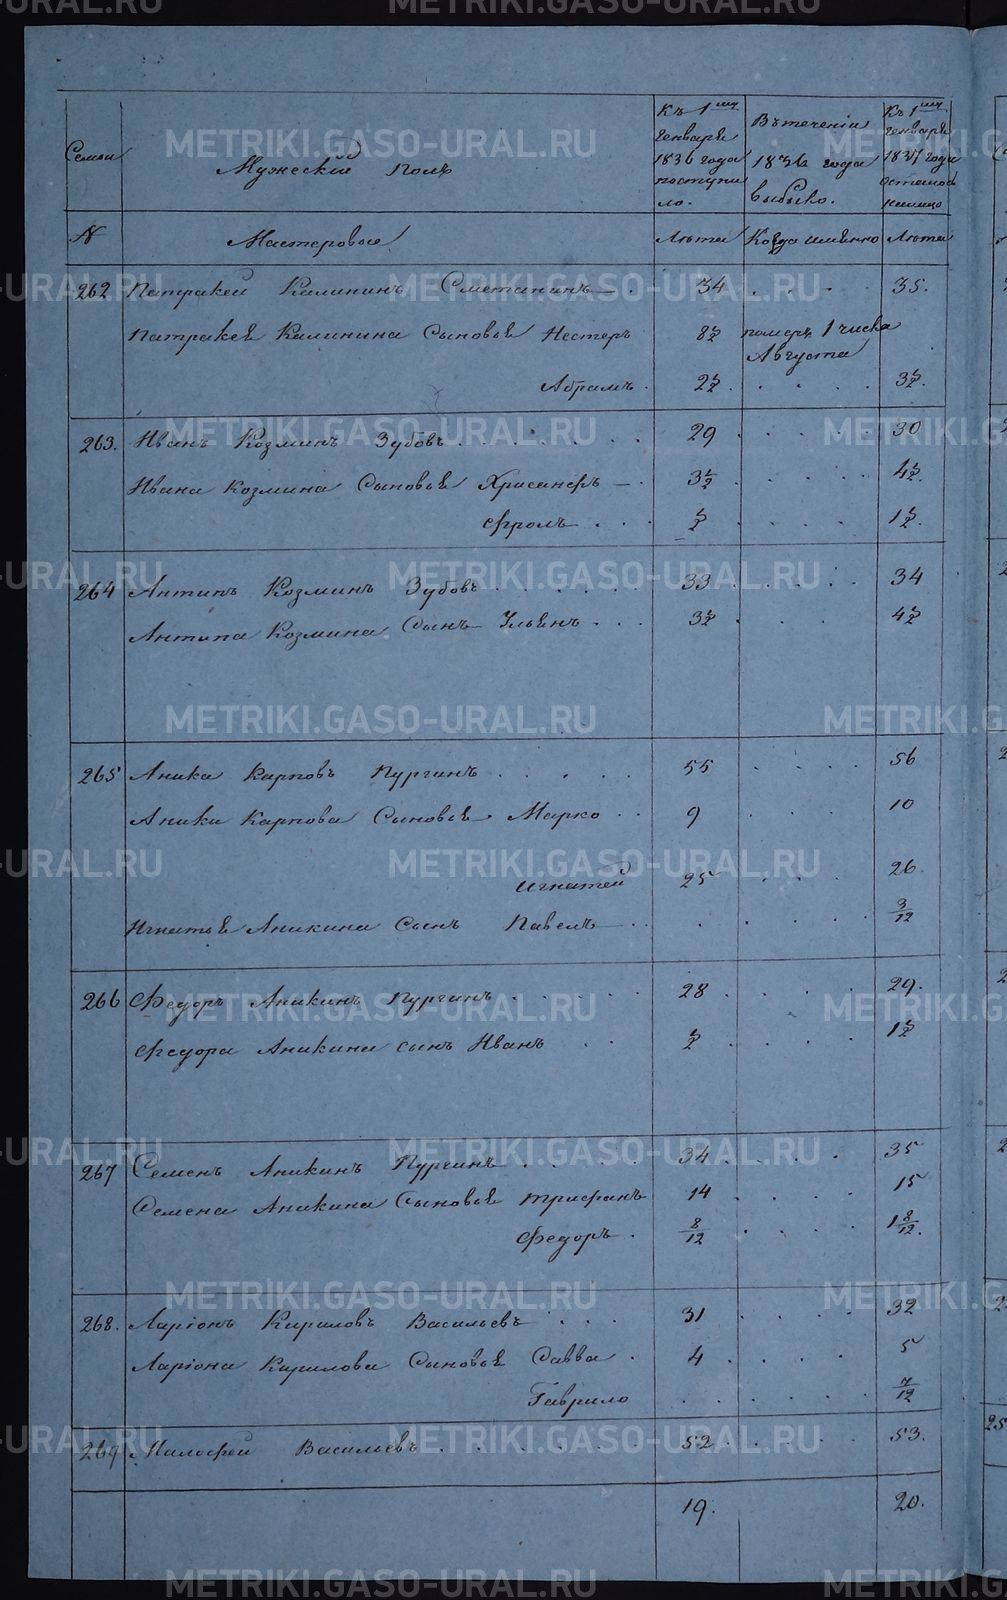 Семьи
Мужескій полъ
Къ 1му Генваря 1836 года поступило.
Въ теченіи 1836 года выбыло.
Къ 1му Генваря 1837 года осталось налицо
№ Мастеровые Лѣта Когда именно Лѣта
262 Патракей Калининъ Сметанинъ 34 35.
Патракея Калинина Сыновья Нестеръ 8½ померъ 1 числа Августа
Абрамъ 2½ 3½.
263. Иванъ Козминъ Зубовъ 29 30
Ивана Козмина Сыновья Хрисанфъ 3½ 4½.
Фролъ ½ 1½.
264 Антипъ Козминъ Зубовъ 33 34
Антипа Козмина Сынъ Ульянъ 3½ 4½
265 Аника Карповъ Пургинъ 55 56
Аники Карпова Сыновья Марко 9 10
Игнатей 25 26
Игнатья Аникина Сынъ Павелъ 3/12
266 Федоръ Аникинъ Пургинъ 28 29.
Федора Аникина сынъ Иванъ ½ 1½
267 Семенъ Аникинъ Пургинъ 34 35
Семена Аникина Сыновья Трифанъ 14 15
Федоръ. 8/12 1 8/12.
268. Ларіонъ Кириловъ Васильевъ 31 32
Ларіона Кирилова Сыновья Савва 4 5
Гаврило 7/12
269 Милофей Васильевъ 52 53.
19. 20.
METRIKI.GASO-URAL.RU